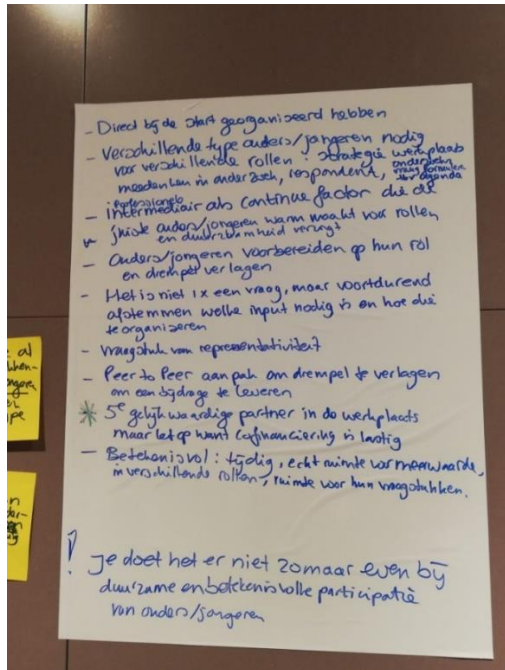 - Direct bij de start georganiseerd hebben
- Verschillende type ouders/jongeren nodig
voor verschillende rollen: strategie werkplaats
meedenken in onderzoek, respondent, onderzoeks
vraag formuleren
ter agenda
professionals
- Intermediair als continue factor die de
juiste ouders/jongeren warm maakt voor rollen
en duurzaamheid verzorgt
- Ouders/jongeren voorbereiden op hun rol
en drempel verlagen
- Het is niet 1x een vraag, maar voortdurend
afstemmen welke input nodig is en hoe die
te organiseren
- vraagstuk van representativiteit
- Peer to Peer aanpak om drempel te verlagen
om een bijdrage te leveren
* 5e gelijkwaardige partner in de werkplaats
maar let op want cofinanciering is lastig
- Betekenisvol: tijdig, echt ruimte voor meerwaarde,
in verschillende rollen, ruimte voor hun vraagstukken.
! Je doet het er niet zomaar even bij
duurzame en betekenisvolle participatie
van ouders/jongeren
al